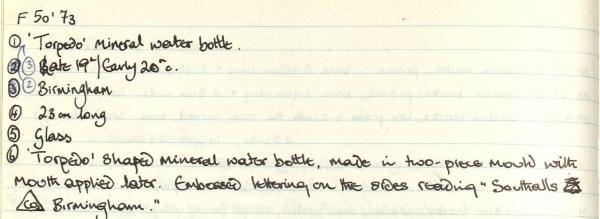 F 50'73
① 'Torpedo' Mineral water bottle.
② ③ Late 19th/Early 20th c.
③ ② Birmingham
④ 23 cm long
⑤ Glass
⑥ 'Torpedo' shaped mineral water bottle, made in two-piece mould with
mouth applied later. Embossed lettering on the sides reading "Southalls
Co. Birmingham."